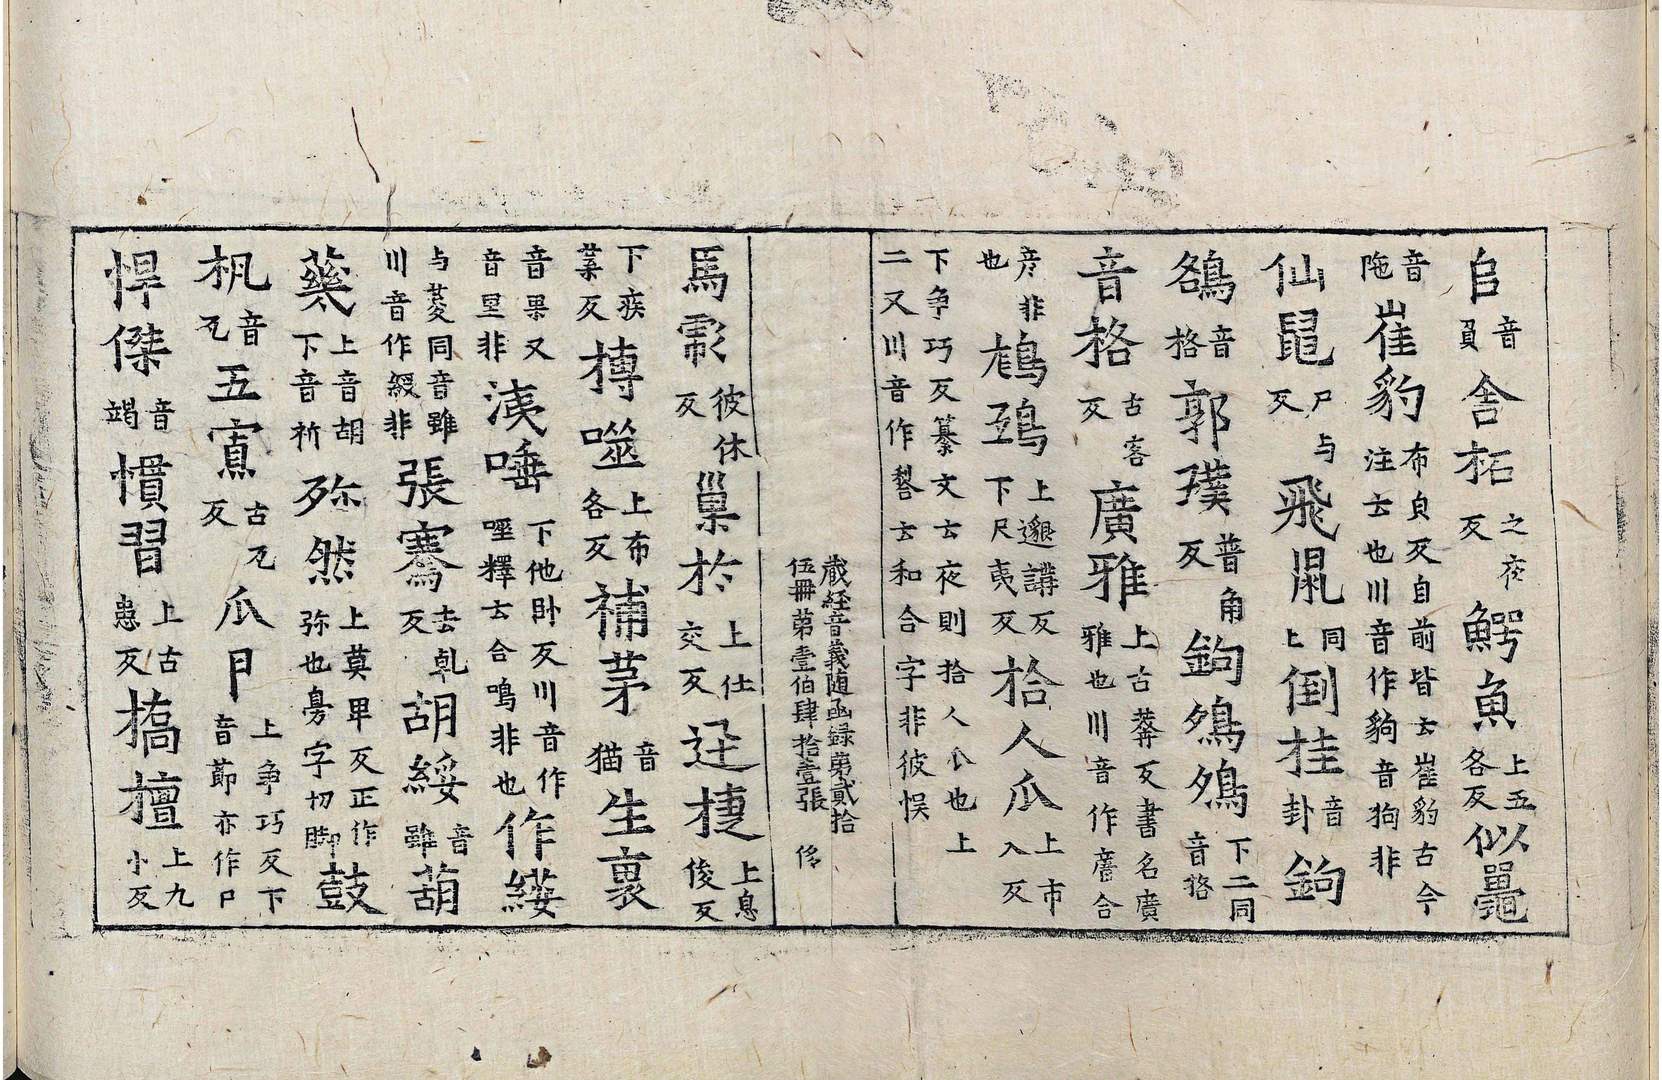 𠂤音員舍拓之夜反鰐魚上五各反似鼉
音陁崔豹布皃反自前皆云崔豹古今注云也川音作豹音狗非
仙鼠尸与反飛䑕同上倒挂音卦鉤
鵅音格郭璞普角反鉤鵅鵅下二同音格
音格古客反廣雅上古莽反書名廣雅也川音作𢊍合
彦非也鵂鶹上邈講反下尺夷反拾人爪上市入反
下爭巧反纂文云夜則拾人爪也上二又川音作䥯云和合字非彼悮
藏経音義随函録第貳拾伍冊第壹伯肆拾壹張 侈
馬䨲彼休反巢於上仕交反迅捷上息俊反
下疾葉反摶噬上布各反補茅音猫生裏
音果又音里非洟唾下他卧反川音作唖釋云合鳴非也作綏
与荽同音雖川音作緩非張騫去乹反胡綏音雖葫
蒵上音胡下音析弥然上莫畀反正作弥也㝵字切脚鼓
枫音丮五㝢古丮反爪𠃜上爭巧反下音莭亦作𠃜
悍傑音竭慣習上古患反撟擅上九小反